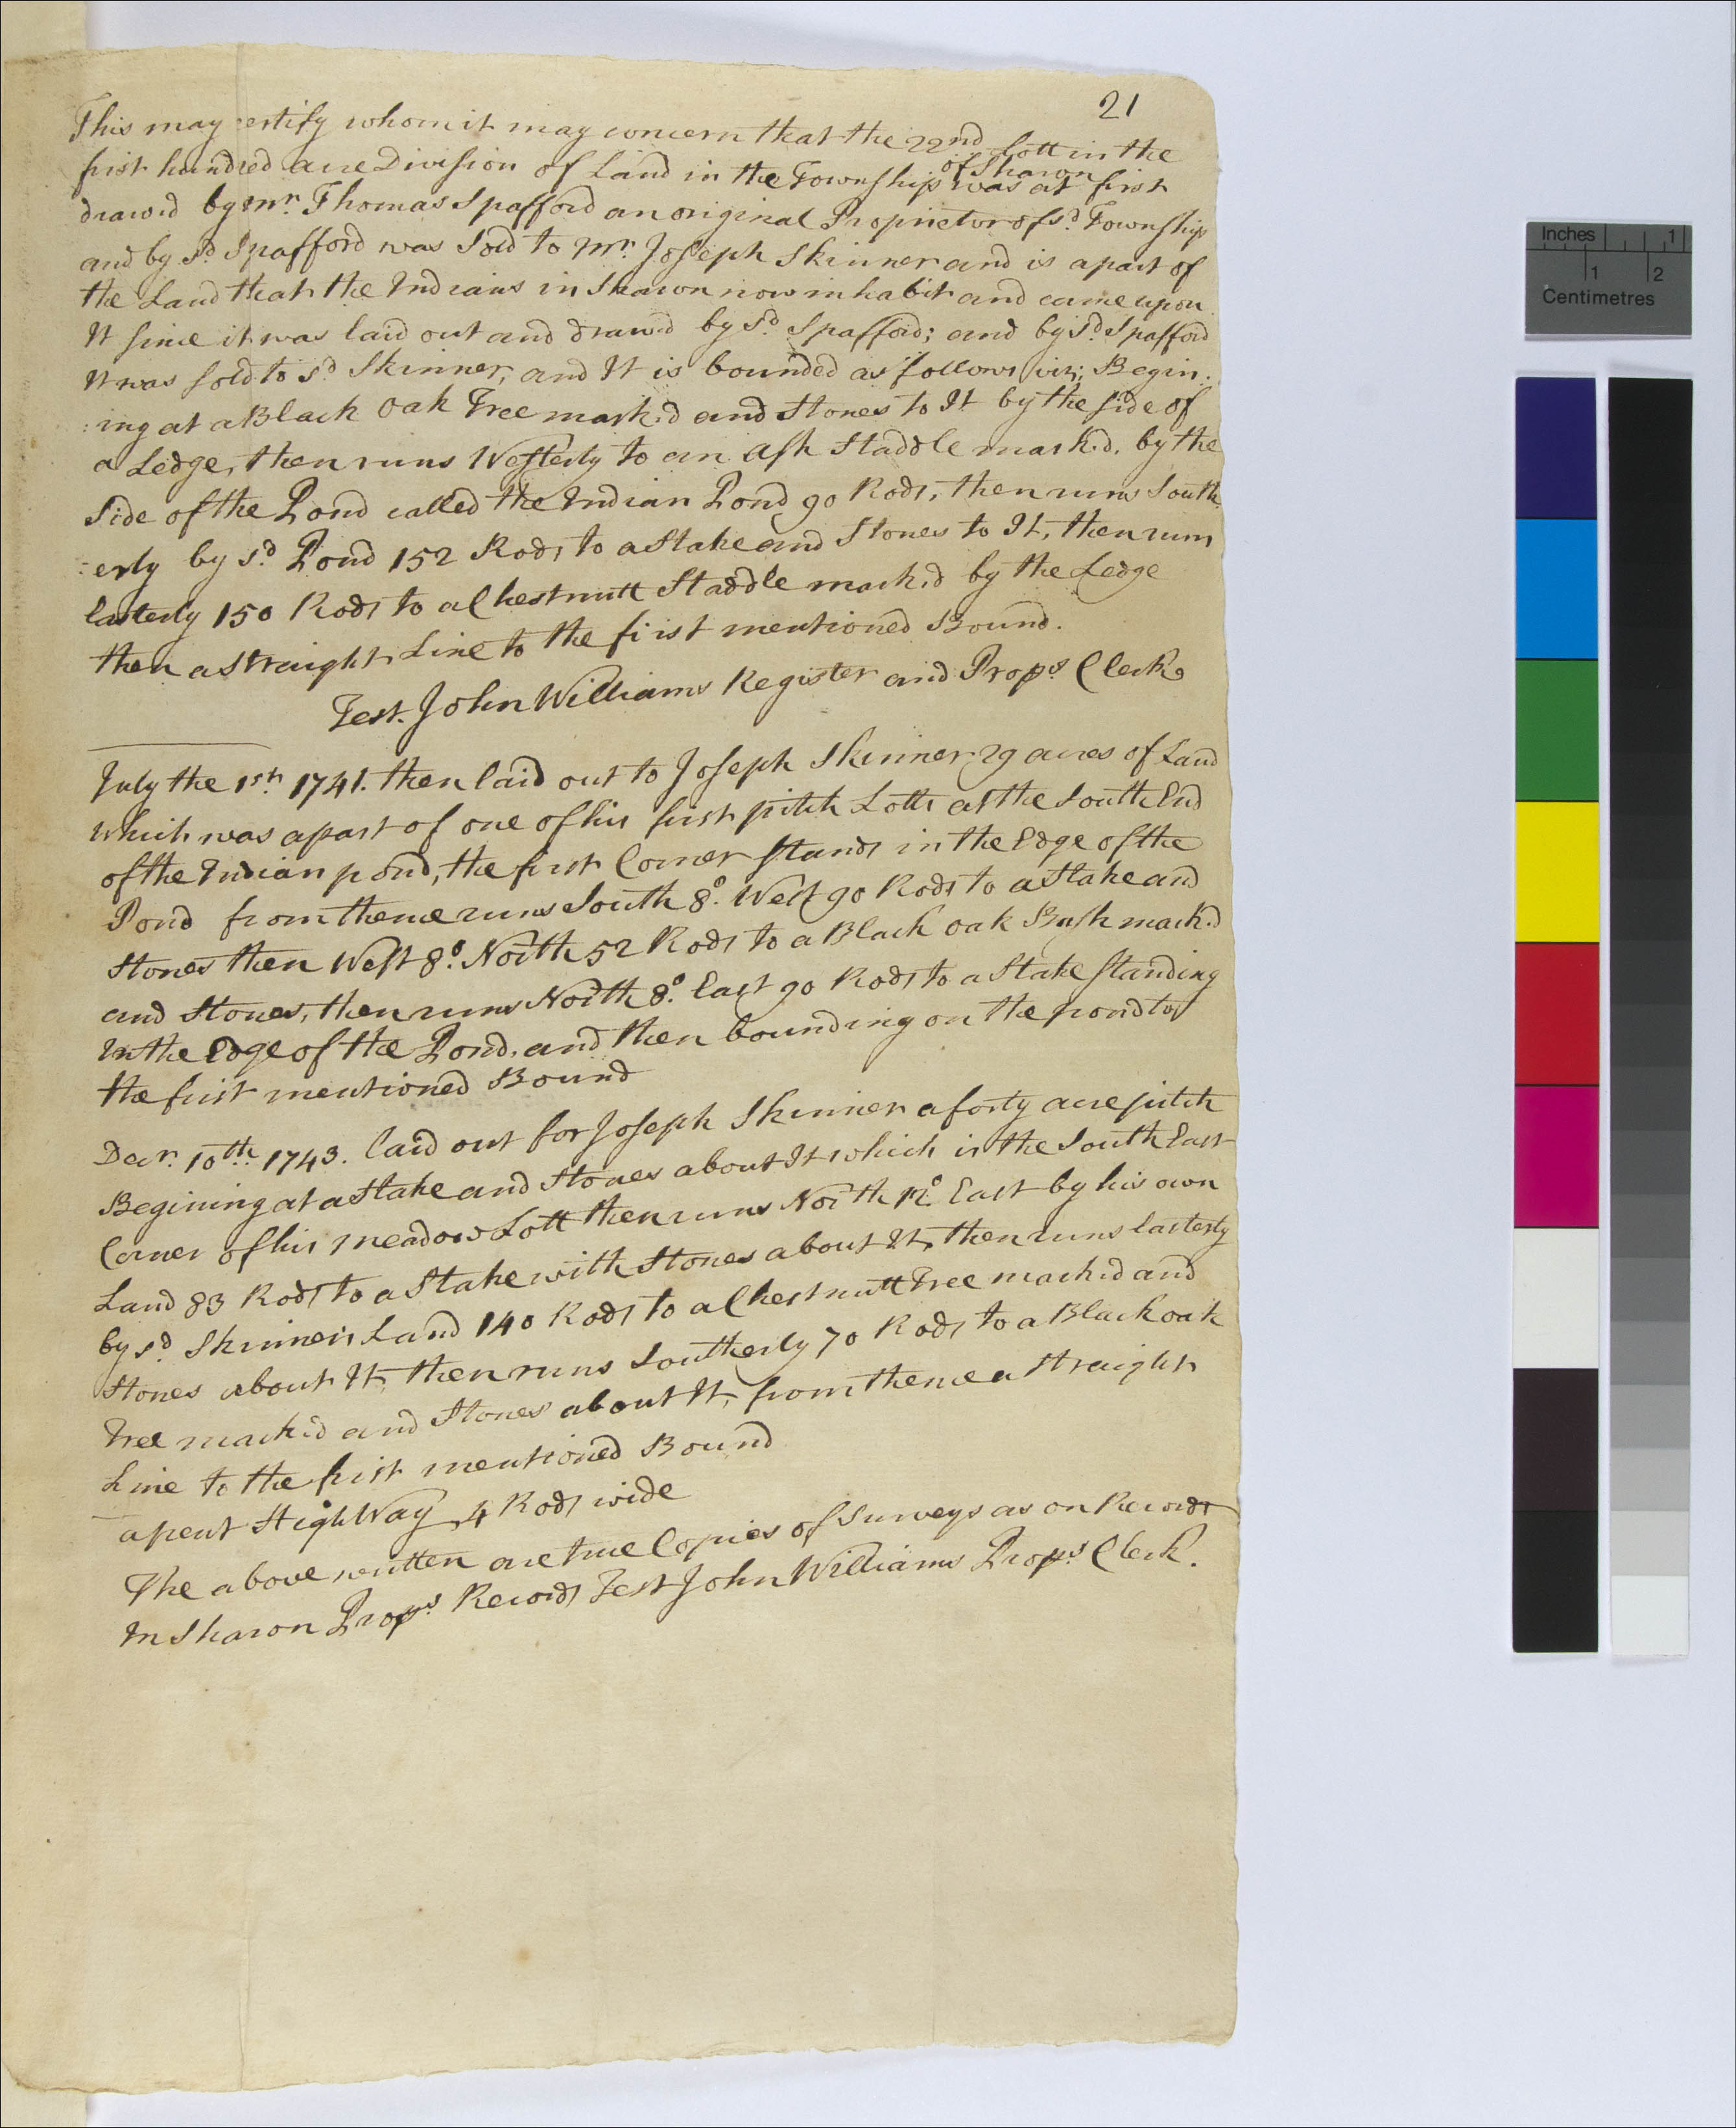 21
This may certify whom it may concern that the 22nd Lott in the
first hundred acre Division of Land in the Township of Sharon was at first
drawd by Mr. Thomas Spafford an original Proprietor of sd. Township
and by sd Spafford was Sold to Mr. Joseph Skinner and is a part of
the Land that the Indians in Sharon now inhabit and came upon
It since it was laid out and drawd by sd Spafford; and by sd. Spafford
It was sold to sd Skinner, and It is bounded as follows viz; Begin:
:ing at a Black Oak Tree markd and Stones to It by the side of
a Ledge, then runs Westerly to an Ash Staddle markd. by the
Side of the Pond called the Indian Pond 90 Rods, then runs South
:erly by sd. Pond 152 Rods to a Stake and Stones to It, then runs
Easterly 150 Rods to a Chestnutt Staddle markd by the Ledge
then a straight Line to the first mentioned Bound.
Test. John Williams Register and Props Clerk
July the 1st. 1741. then laid out to Joseph Skinner 29 acres of Land
which was a part of one of his first pitch Lotts at the South End
of the Indian pond, the first Corner stands in the Edge of the
Pond from thence runs South 8°. West 90 Rods to a Stake and
Stones then West 8°. North 52 Rods to a Black Oak Bush markd
and Stones, then runs North 8°. East 90 Rods to a Stake standing
In the Edge of the Pond, and then bounding on the pond to
the first mentioned Bound
Decr. 10th. 1743. laid out for Joseph Skinner a forty acre pitch
Begining at a Stake and Stones about It which is the South East
Corner of his meadow Lott then runs North 12° East by his own
Land 83 Rods to a Stake with Stones about It, then runs Easterly
by sd. Skinners Land 140 Rods to a Chestnutt Tree markd and
Stones about It, then runs Southerly 70 Rods to a Black oak
Tree markd and Stones about It, from thence a straight
Line to the first mentioned Bound
apent HighWay 4 Rods wide
The above written are true Copies of Surveys as on Records
In Sharon Props Records Test John Williams Props. Clerk.
Inches 1
1 2
Centimetres